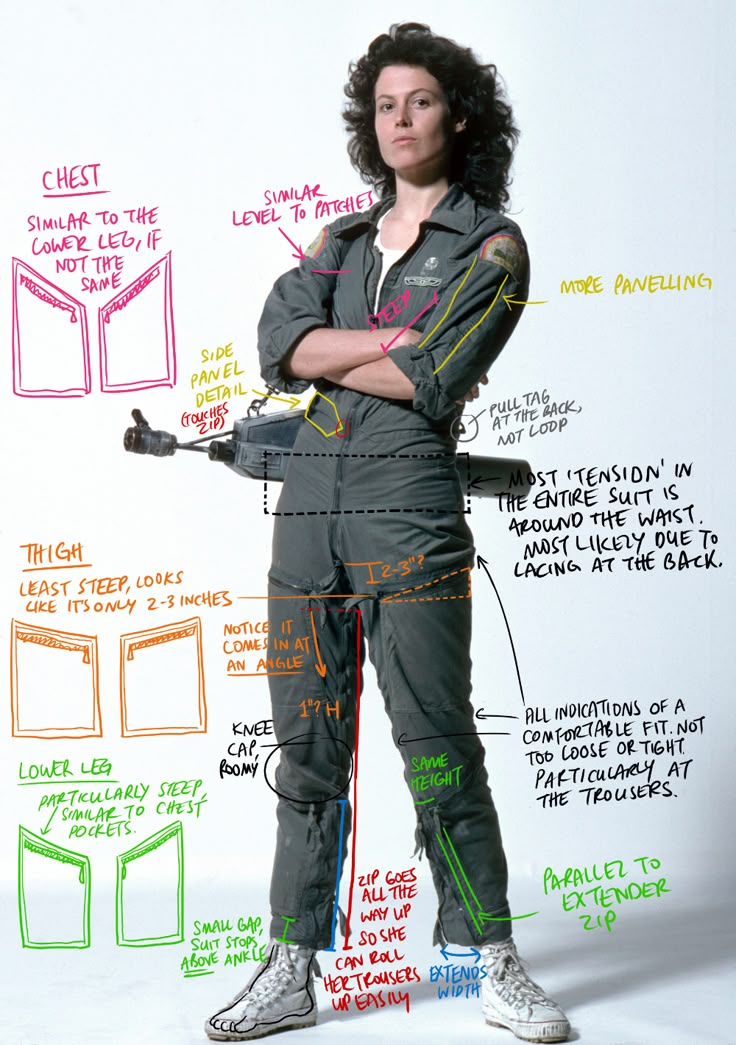 CHEST
SIMILAR TO THE
LOWER LEG, IF
NOT THE
SAME
SIMILAR
LEVEL TO PATCHES
STEEP
MORE PANELLING
SIDE
PANEL
DETAIL
(TOUCHES
ZIP)
PULL TAG
AT THE BACK,
NOT LOOP
MOST 'TENSION' IN
THE ENTIRE SUIT IS
AROUND THE WAIST.
MOST LIKELY DUE TO
LACING AT THE BACK.
THIGH
LEAST STEEP, LOOKS
LIKE IT'S ONLY 2-3 INCHES
2-3"?
NOTICE IT
COMES IN AT
AN ANGLE
1"? H
KNEE
CAP,
ROOMY
ALL INDICATIONS OF A
COMFORTABLE FIT. NOT
TOO LOOSE OR TIGHT.
PARTICULARLY AT
THE TROUSERS.
LOWER LEG
PARTICULARLY STEEP,
SIMILAR TO CHEST
POCKETS.
SAME
HEIGHT
PARALLEL TO
EXTENDER
ZIP
SMALL GAP,
SUIT STOPS
ABOVE ANKLE
ZIP GOES
ALL THE
WAY UP
SO SHE
CAN ROLL
HER TROUSERS
UP EASILY
EXTENDS
WIDTH